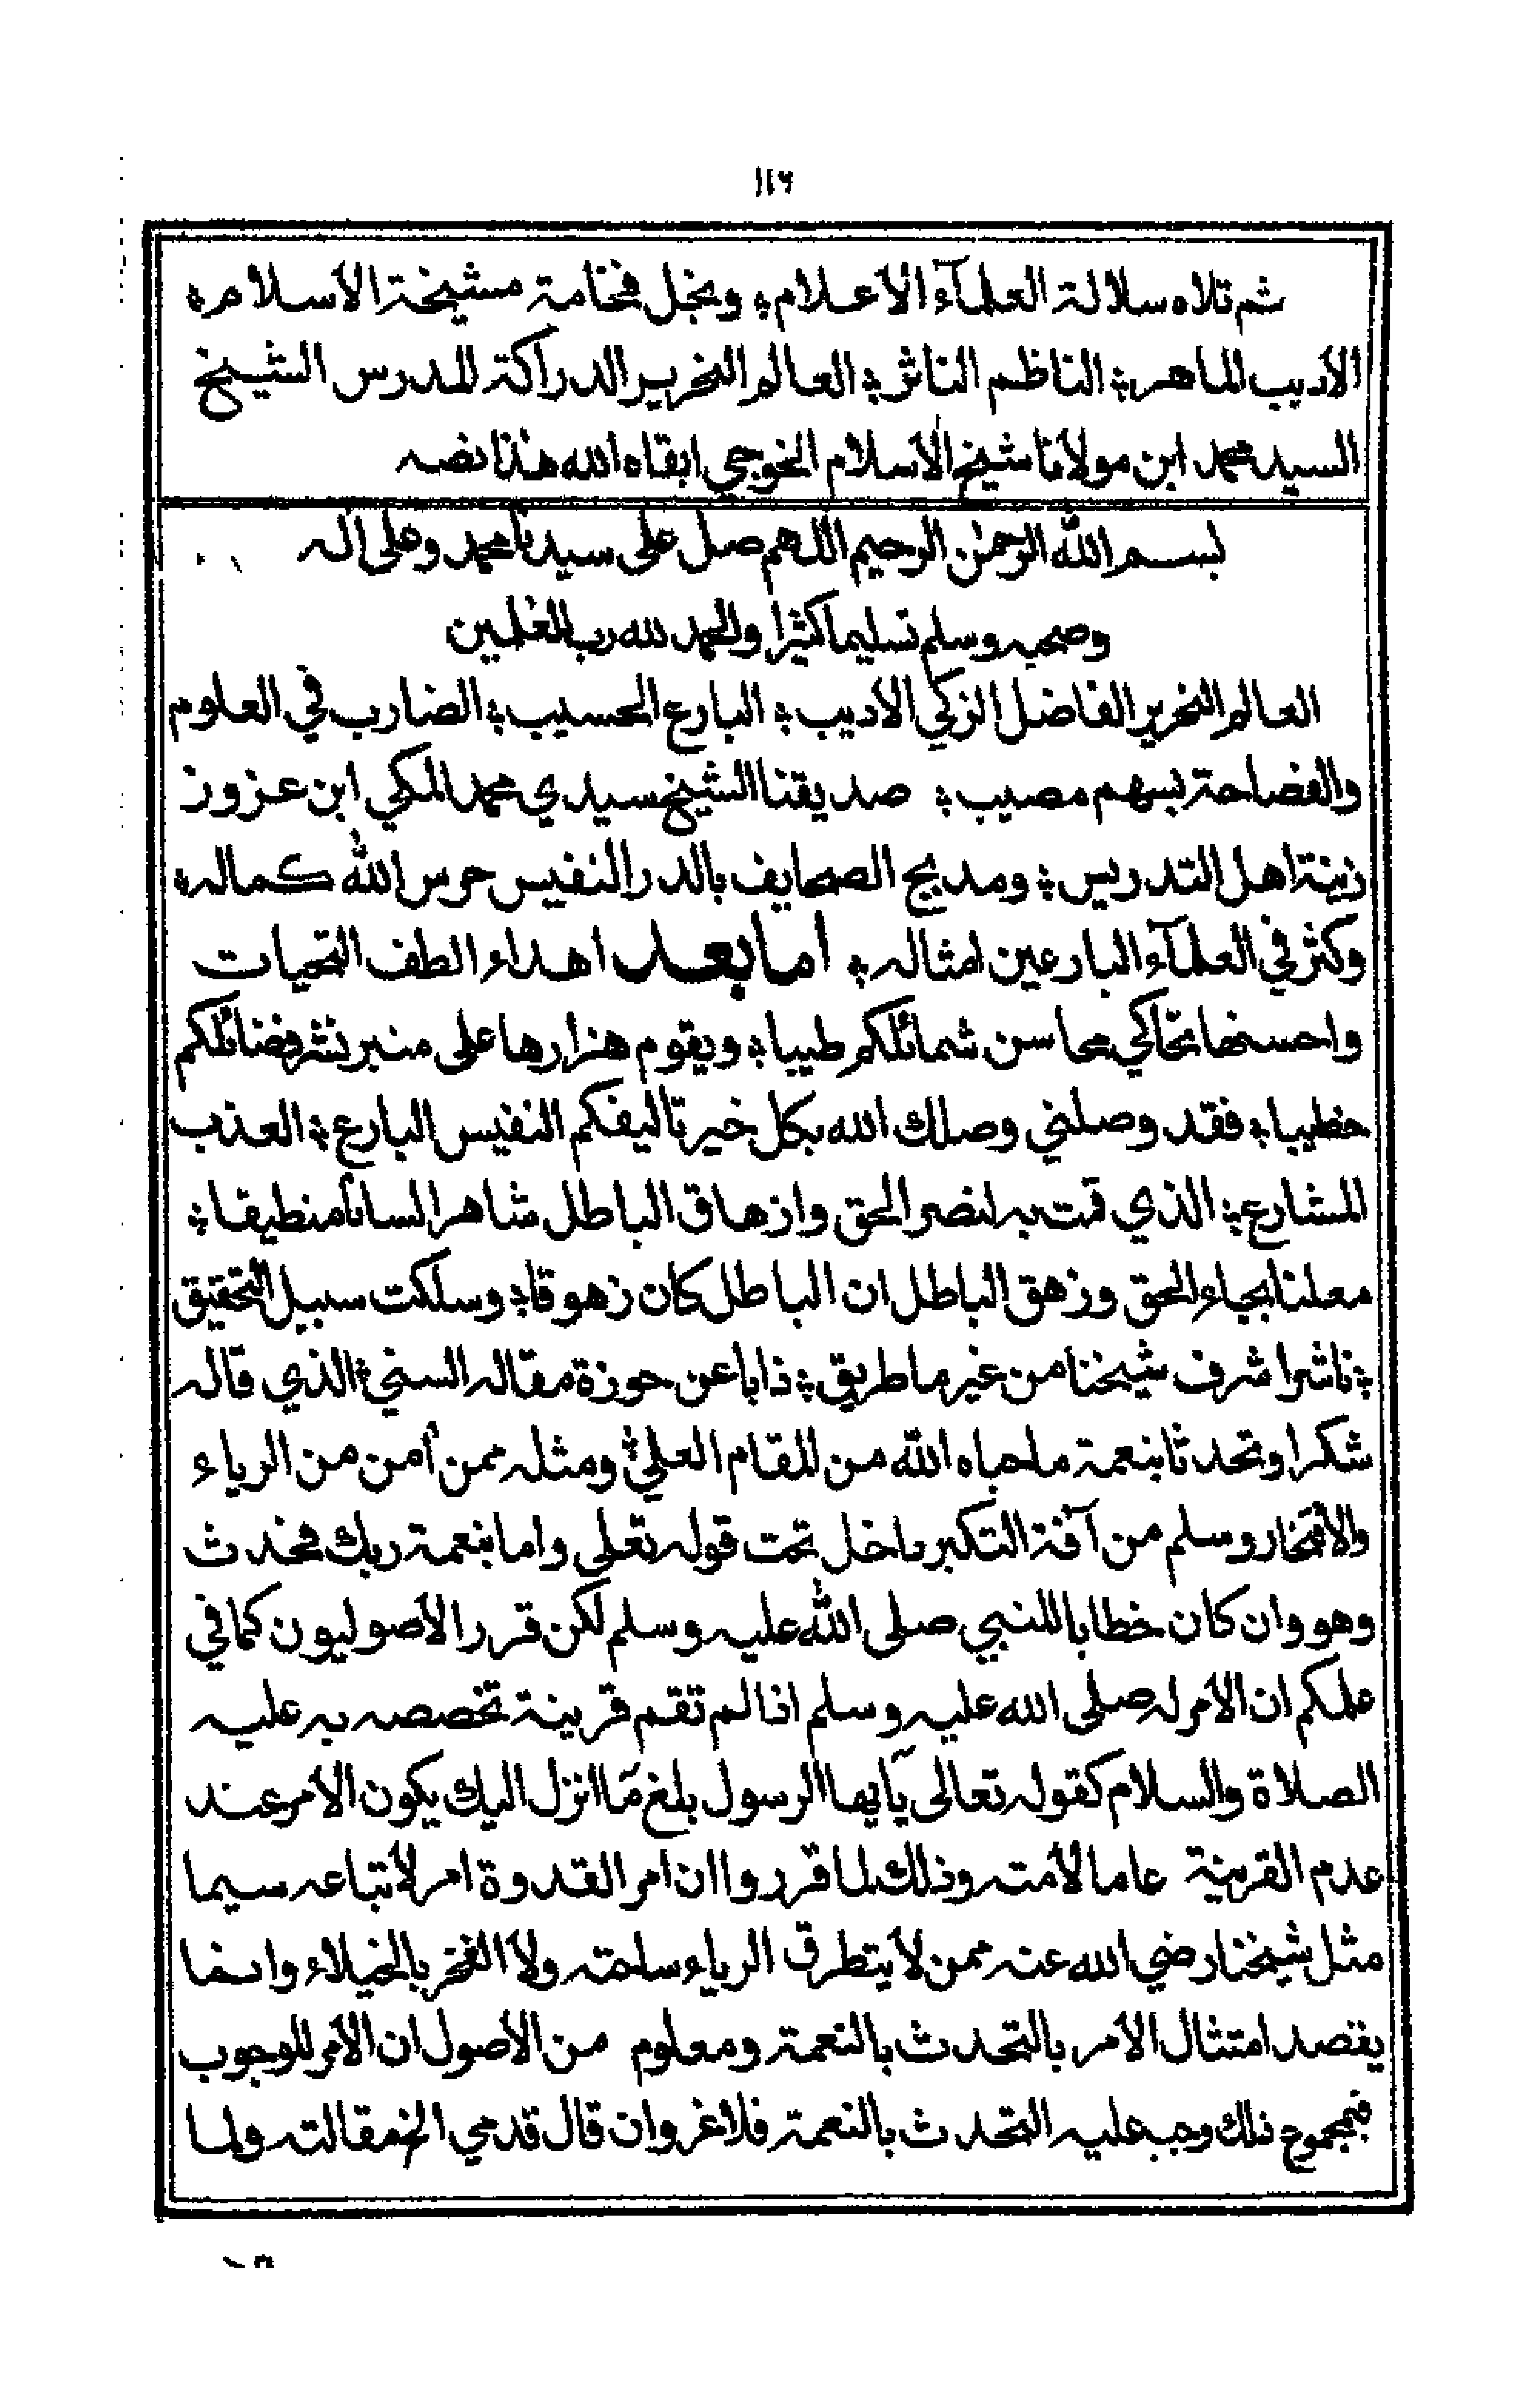 ١١٦
ثم تلاه سلالة العلمآء الأعلام ؛ ونجل فخامة مشيخة الأسلام ؛
الأديب الماهر ؛ الناظم الناثر ؛ العالم النحرير الدراكة المدرس الشيخ
السيد محمد ابن مولانا شيخ الأسلام الخوجي ابقاه الله هذا نصه
بسم الله الرحمٰن الرحيم اللهم صل على سيدنا محمد وعلى اله
وصحبه وسلم تسليما كثيرا والحمد لله رب العٰلمين
العالم النحرير الفاضل الزكي الأديب ؛ البارع الحسيب ؛ الضارب في العلوم
والفصاحة بسهم مصيب ؛ صديقنا الشيخ سيدي محمد المكي ابن عزوز
زينة اهل التدريس ؛ ومدبج الصحايف بالدر النفيس حرس الله كماله ؛
وكثر في العلمآء البارعين امثاله ؛ اما بعد اهداء الطف التحيات
واحسنها تحاكي محاسن شمائلكم طيبا ؛ ويقوم هزارها على منبر نشر فضائلكم
خطيبا ؛ فقد وصلني وصلك الله بكل خير تاليفكم النفيس البارع ؛ العذب
المشارع ؛ الذي قمت به لنصر الحق وازهاق الباطل شاهرا لسانا منطيقا ؛
معلنا بجاء الحق وزهق الباطل ان الباطل كان زهوقا ؛ وسلكت سبيل التحقيق
؛ ناشرا شرف شيخنا من غير ما طريق ؛ ذابا عن حوزة مقاله السني ؛ الذي قاله
شكرا وتحدثا بنعمة ما حباه الله من المقام العلي ؛ ومثله ممن أمن من الرياء
والأفتخار وسلم من آفة التكبر داخل تحت قوله تعلى واما بنعمة ربك فحدث
وهو وان كان خطابا للنبي صلى الله عليه وسلم لكن قرر الأصوليون كما في
علمكم ان الأمر له صلى الله عليه وسلم اذا لم تقم قرينة تخصصه به عليه
الصلاة والسلام كقوله تعالى يآيها الرسول بلغ مآ انزل اليك يكون الأمر عند
عدم القرينة عاما لأمته وذلك لما قرروا ان امر القدوة امر لأتباعه سيما
مثل شيخنا رضي الله عنه ممن لا يتطرق الرياء ساحته ولا الفخر بالخيلاء وانما
يقصد امتثال الأمر بالتحدث بالنعمة ومعلوم من الأصول ان الأمر للوجوب
فبمجموع ذلك وجب عليه التحدث بالنعمة فلا غرو ان قال قدمي الخ مقالته ولما